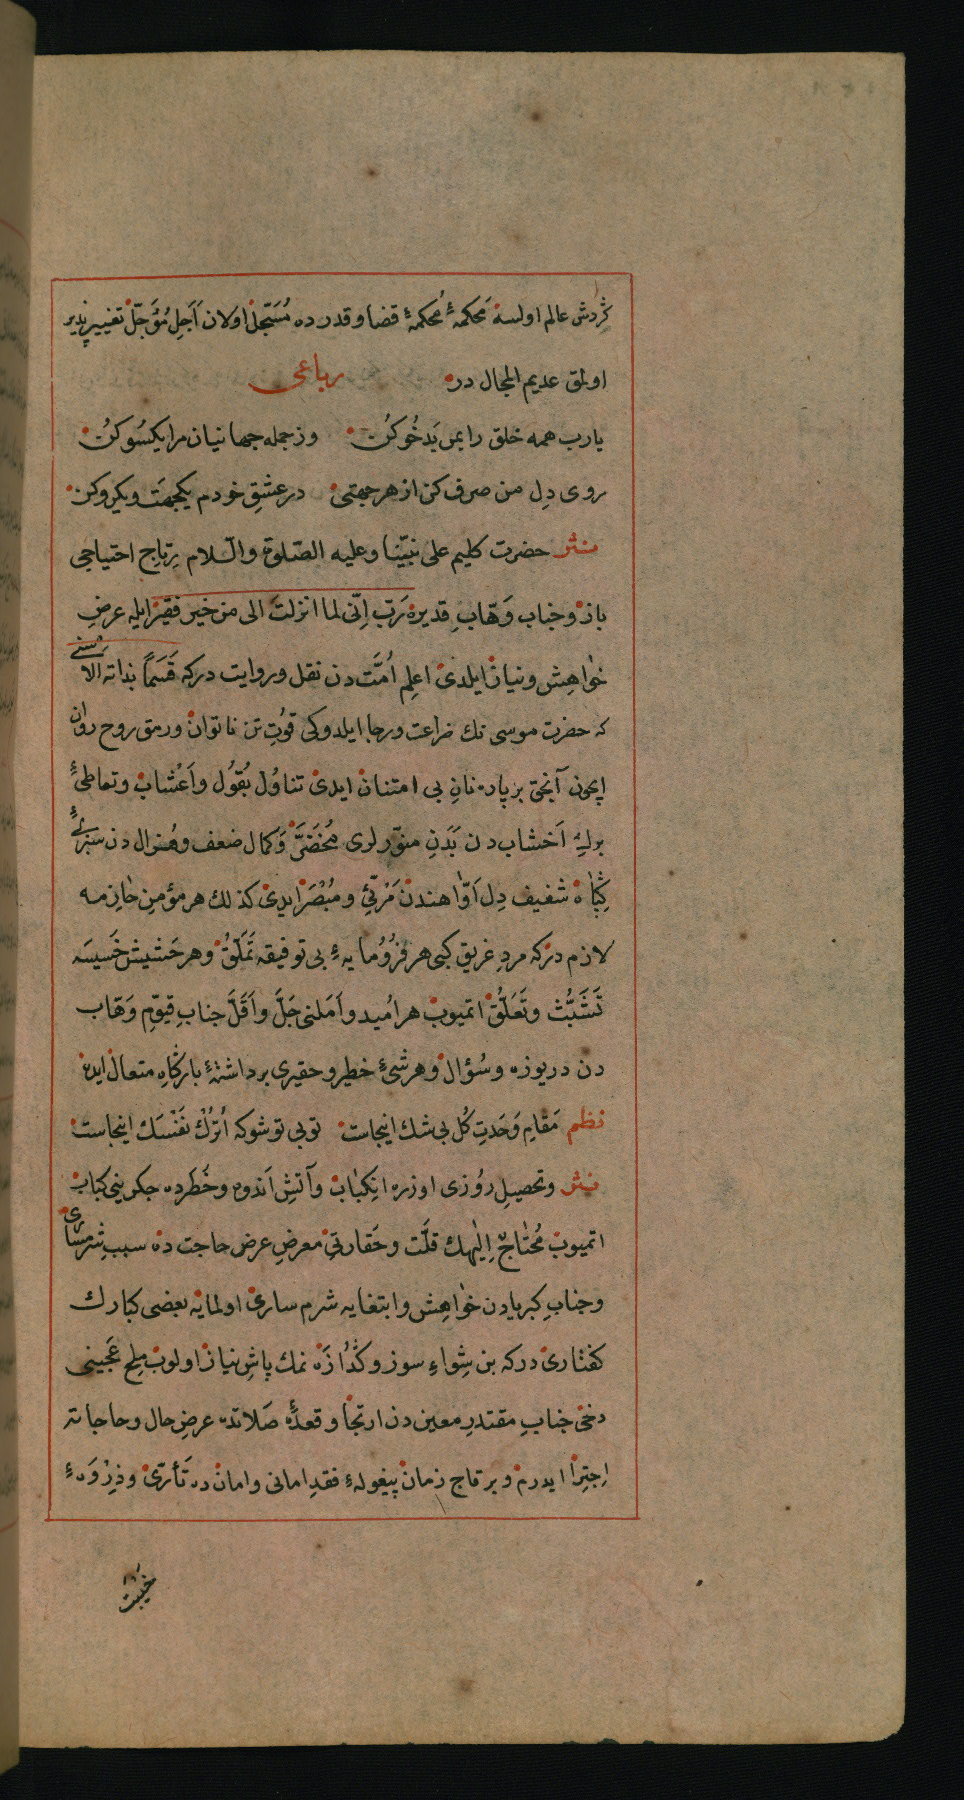 گردش عالم اولسه مَحکمهٔ مُحکمهٔ قضا و قدرده مُسَجّل اولان اَجَلِ مُؤَجّل تغییرپذیر
اولمق عدیم المجال در رباعی
یارب همه خلق را بمن بَدخُو کُن وز جمله جهانیان مرا یکسُو کُن
روی دِل من صرف کن از هر جهتی در عشقِ خودم یکجهَت و یکرو کن
نثر حضرت کلیم علی نبیّنا و علیه الصّلوة والسّلام رِتاجِ احتیاجی
باز و جناب وَهّابِ قدیره رَبّ اِنّی لما انزلتَ الی من خیر فقیرٌ ایله عرضِ
خواهِش و نیاز ایلدی اعلمِ اُمَّت دن نقل و روایت درکه قَسَمًا بذاته الاسنی
که حضرت موسی نك ضراعت و رجا ایلدوکی قوُتِ تن ناتوان و رمق روح روان
ایچون آنجق بر پاره نانِ بی امتنان ایدی تناوُل بُقوُل و اَعْشاب و تعاطیٔ
بركِ اَخشاب دن بَدَنِ منوّرلری مُخضَرَّ و کمال ضعف و هزال دن سبزیٔ
گیاه شفیف دِل اَوّاهندن مَرْئِیّ و مُبْصَر ایدی کذلك هر مؤمنِ حازمه
لازم درکه مردِ غریق کبی هر فرُومایهٔ بی توفیقه تَمَلّقْ و هر حَشیش خَسیسَه
تَشَبُّث و تَعَلُّقْ اتمیوب هر امُید و اَمَلنی جَلَّ و اَقَلَّ جنابِ قیوّمِ وَهّاب
دن دریوزه و سُؤال و هر شیٔ خطیر و حقیری برداشتهٔ بارگاهِ متعال ایده
نظم مَقامِ وَحَدتِ کُل بی شك اینجاست تو بی تو شو که اُترُكْ نَفْسَك اینجاست
نثر و تحصیلِ روُزی اوزره انکباب و آتشِ اَندوه و خَطَرده جکرینی کباب
اتمیوب مُحْتاجٌ اِلَیْهك قلَّت و حَقارتی معرضِ عرض حاجت ده سببِ شرمساری
و جنابِ کبریادن خواهِش و ابتغایه شرم ساری اولمایه بعضی کبارك
کفتاری درکه بن شِواءِ سوز و کُدازَه نمك پاش نیاز اولوب مِلح عَجینی
دخی جنابِ مقتدرِ معین دن ارتجا و قعدهٔ صَلاتده عرضِ حال و حاجاته
اِجتِرا ایدرم و بر قاچ زمان پیغولهٔ فقدِ امانی و امان ده تأَرّی و ذِرْوَهٔ
خیبت